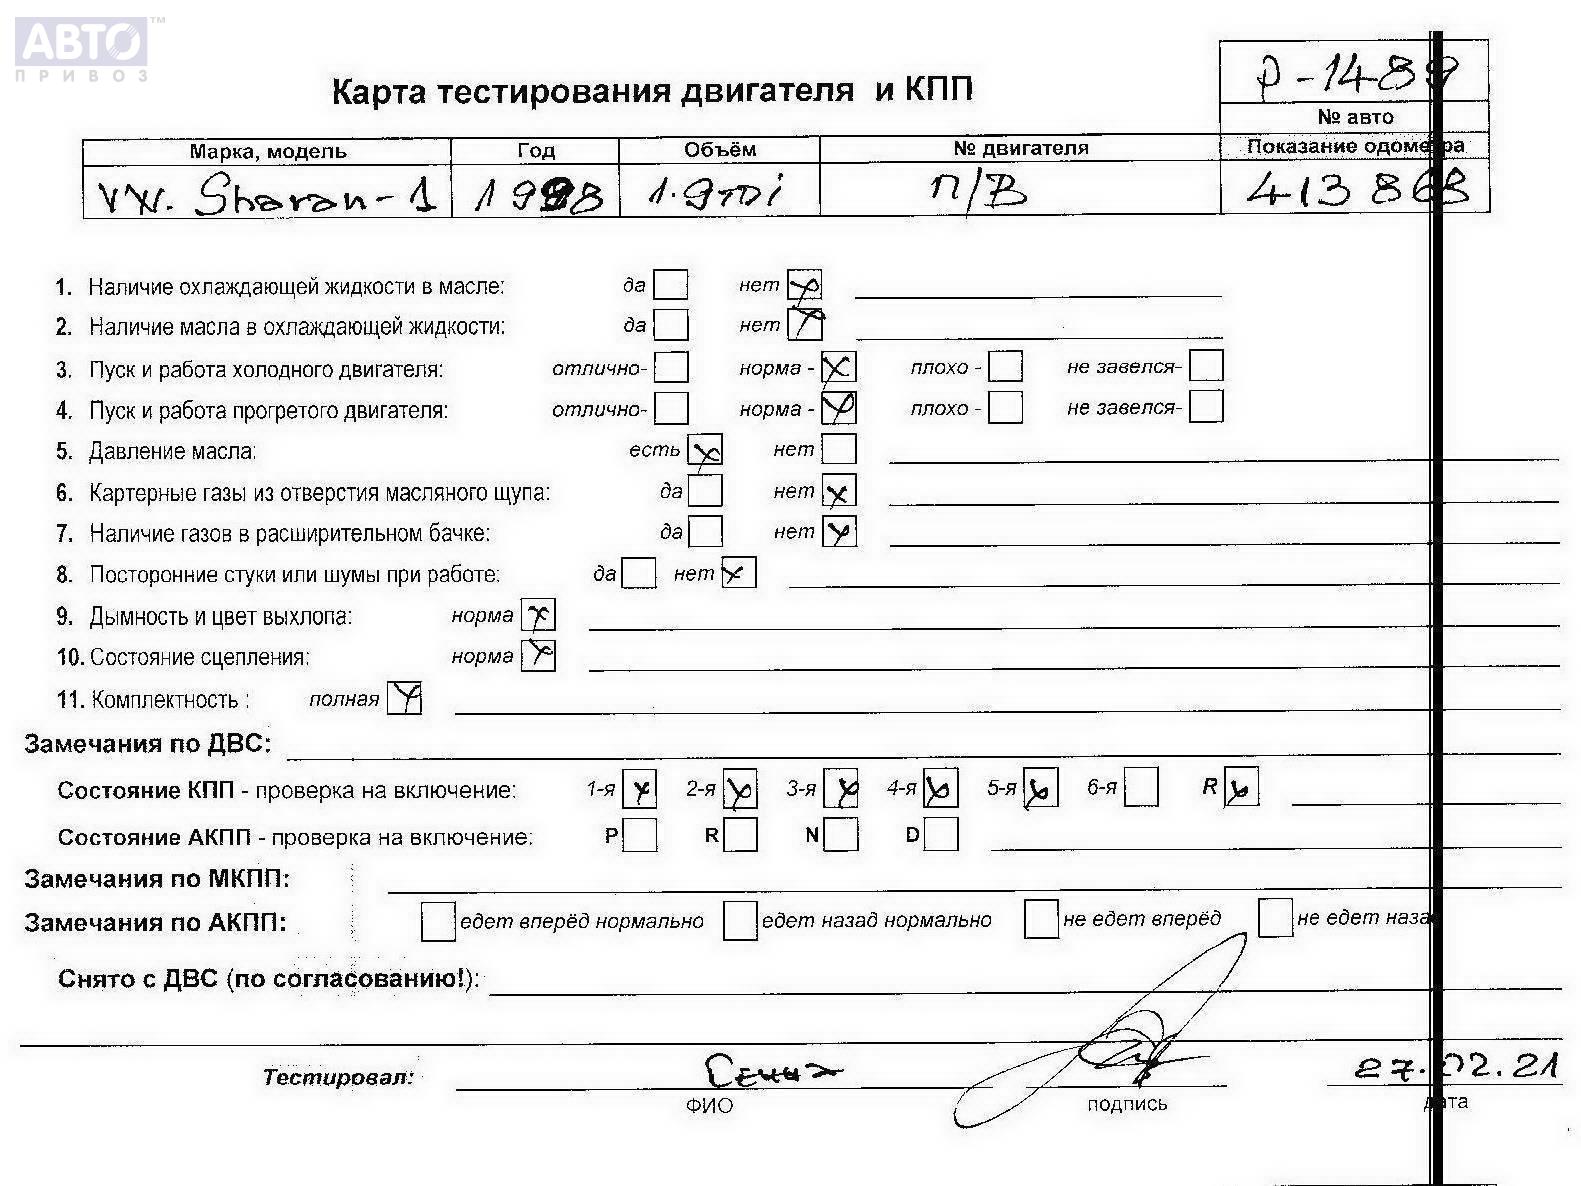 АВТО™
ПРИВОЗ
Карта тестирования двигателя и КПП
Р-1489
№ авто
Марка, модель Год Объём № двигателя Показание одометра
VW. Sharan-1 1998 1.9TDi П/В 413868
1. Наличие охлаждающей жидкости в масле: да нет
2. Наличие масла в охлаждающей жидкости: да нет
3. Пуск и работа холодного двигателя: отлично- норма - плохо - не завелся-
4. Пуск и работа прогретого двигателя: отлично- норма - плохо - не завелся-
5. Давление масла: есть нет
6. Картерные газы из отверстия масляного щупа: да нет
7. Наличие газов в расширительном бачке: да нет
8. Посторонние стуки или шумы при работе: да нет
9. Дымность и цвет выхлопа: норма
10. Состояние сцепления: норма
11. Комплектность : полная
Замечания по ДВС:
Состояние КПП - проверка на включение: 1-я 2-я 3-я 4-я 5-я 6-я R
Состояние АКПП - проверка на включение: P R N D
Замечания по МКПП:
Замечания по АКПП: едет вперёд нормально едет назад нормально не едет вперёд не едет наза
Снято с ДВС (по согласованию!):
Тестировал: 27.02.21
ФИО подпись дата